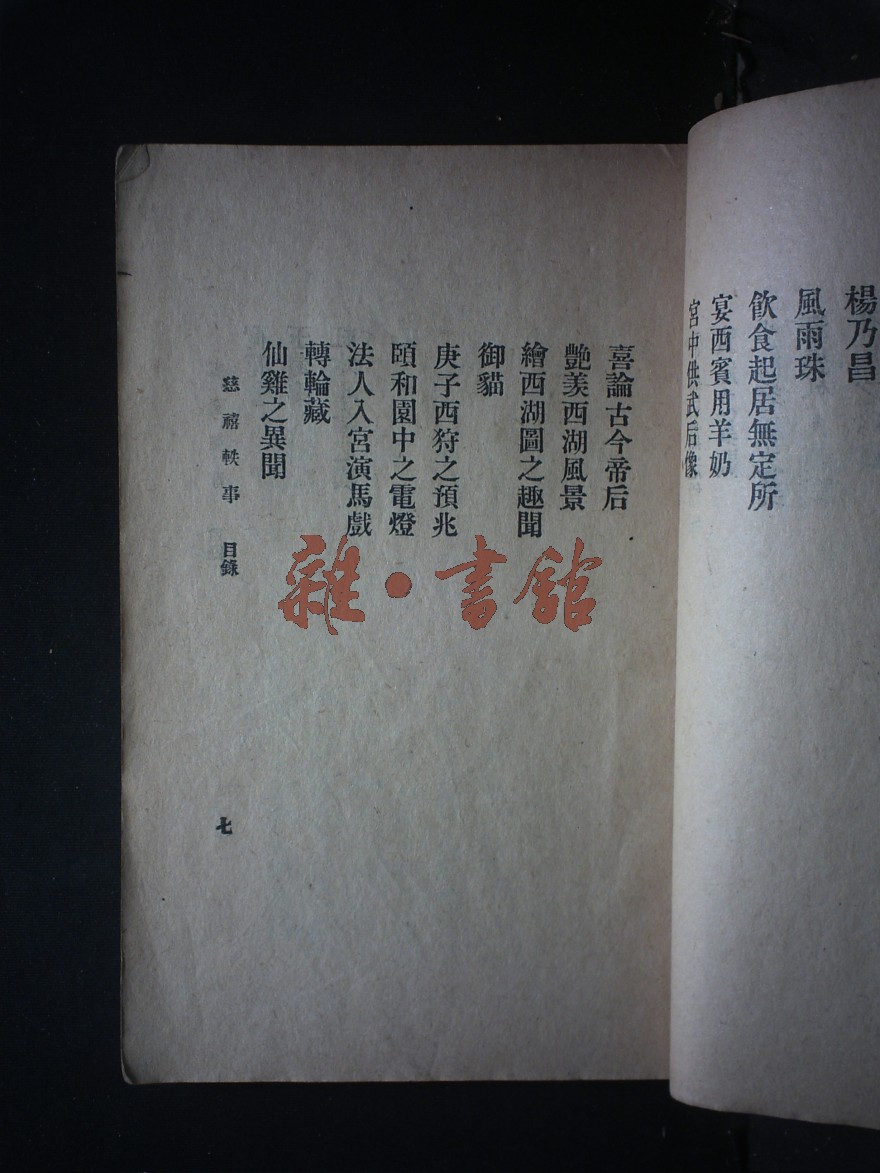 楊乃昌
風雨珠
飲食起居無定所
宴西賓用羊奶
宮中供武后像
喜論古今帝后
艷羨西湖風景
繪西湖圖之趣聞
御貓
庚子西狩之預兆
頤和園中之電燈
法人入宮演馬戲
轉輪藏
仙雞之異聞
慈禧軼事 目錄
七
雜·書館